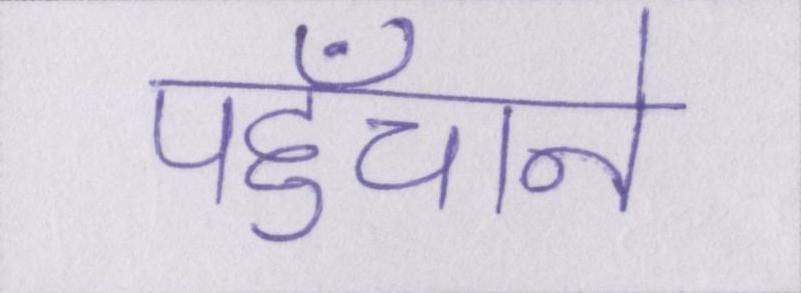 पहुँचाने